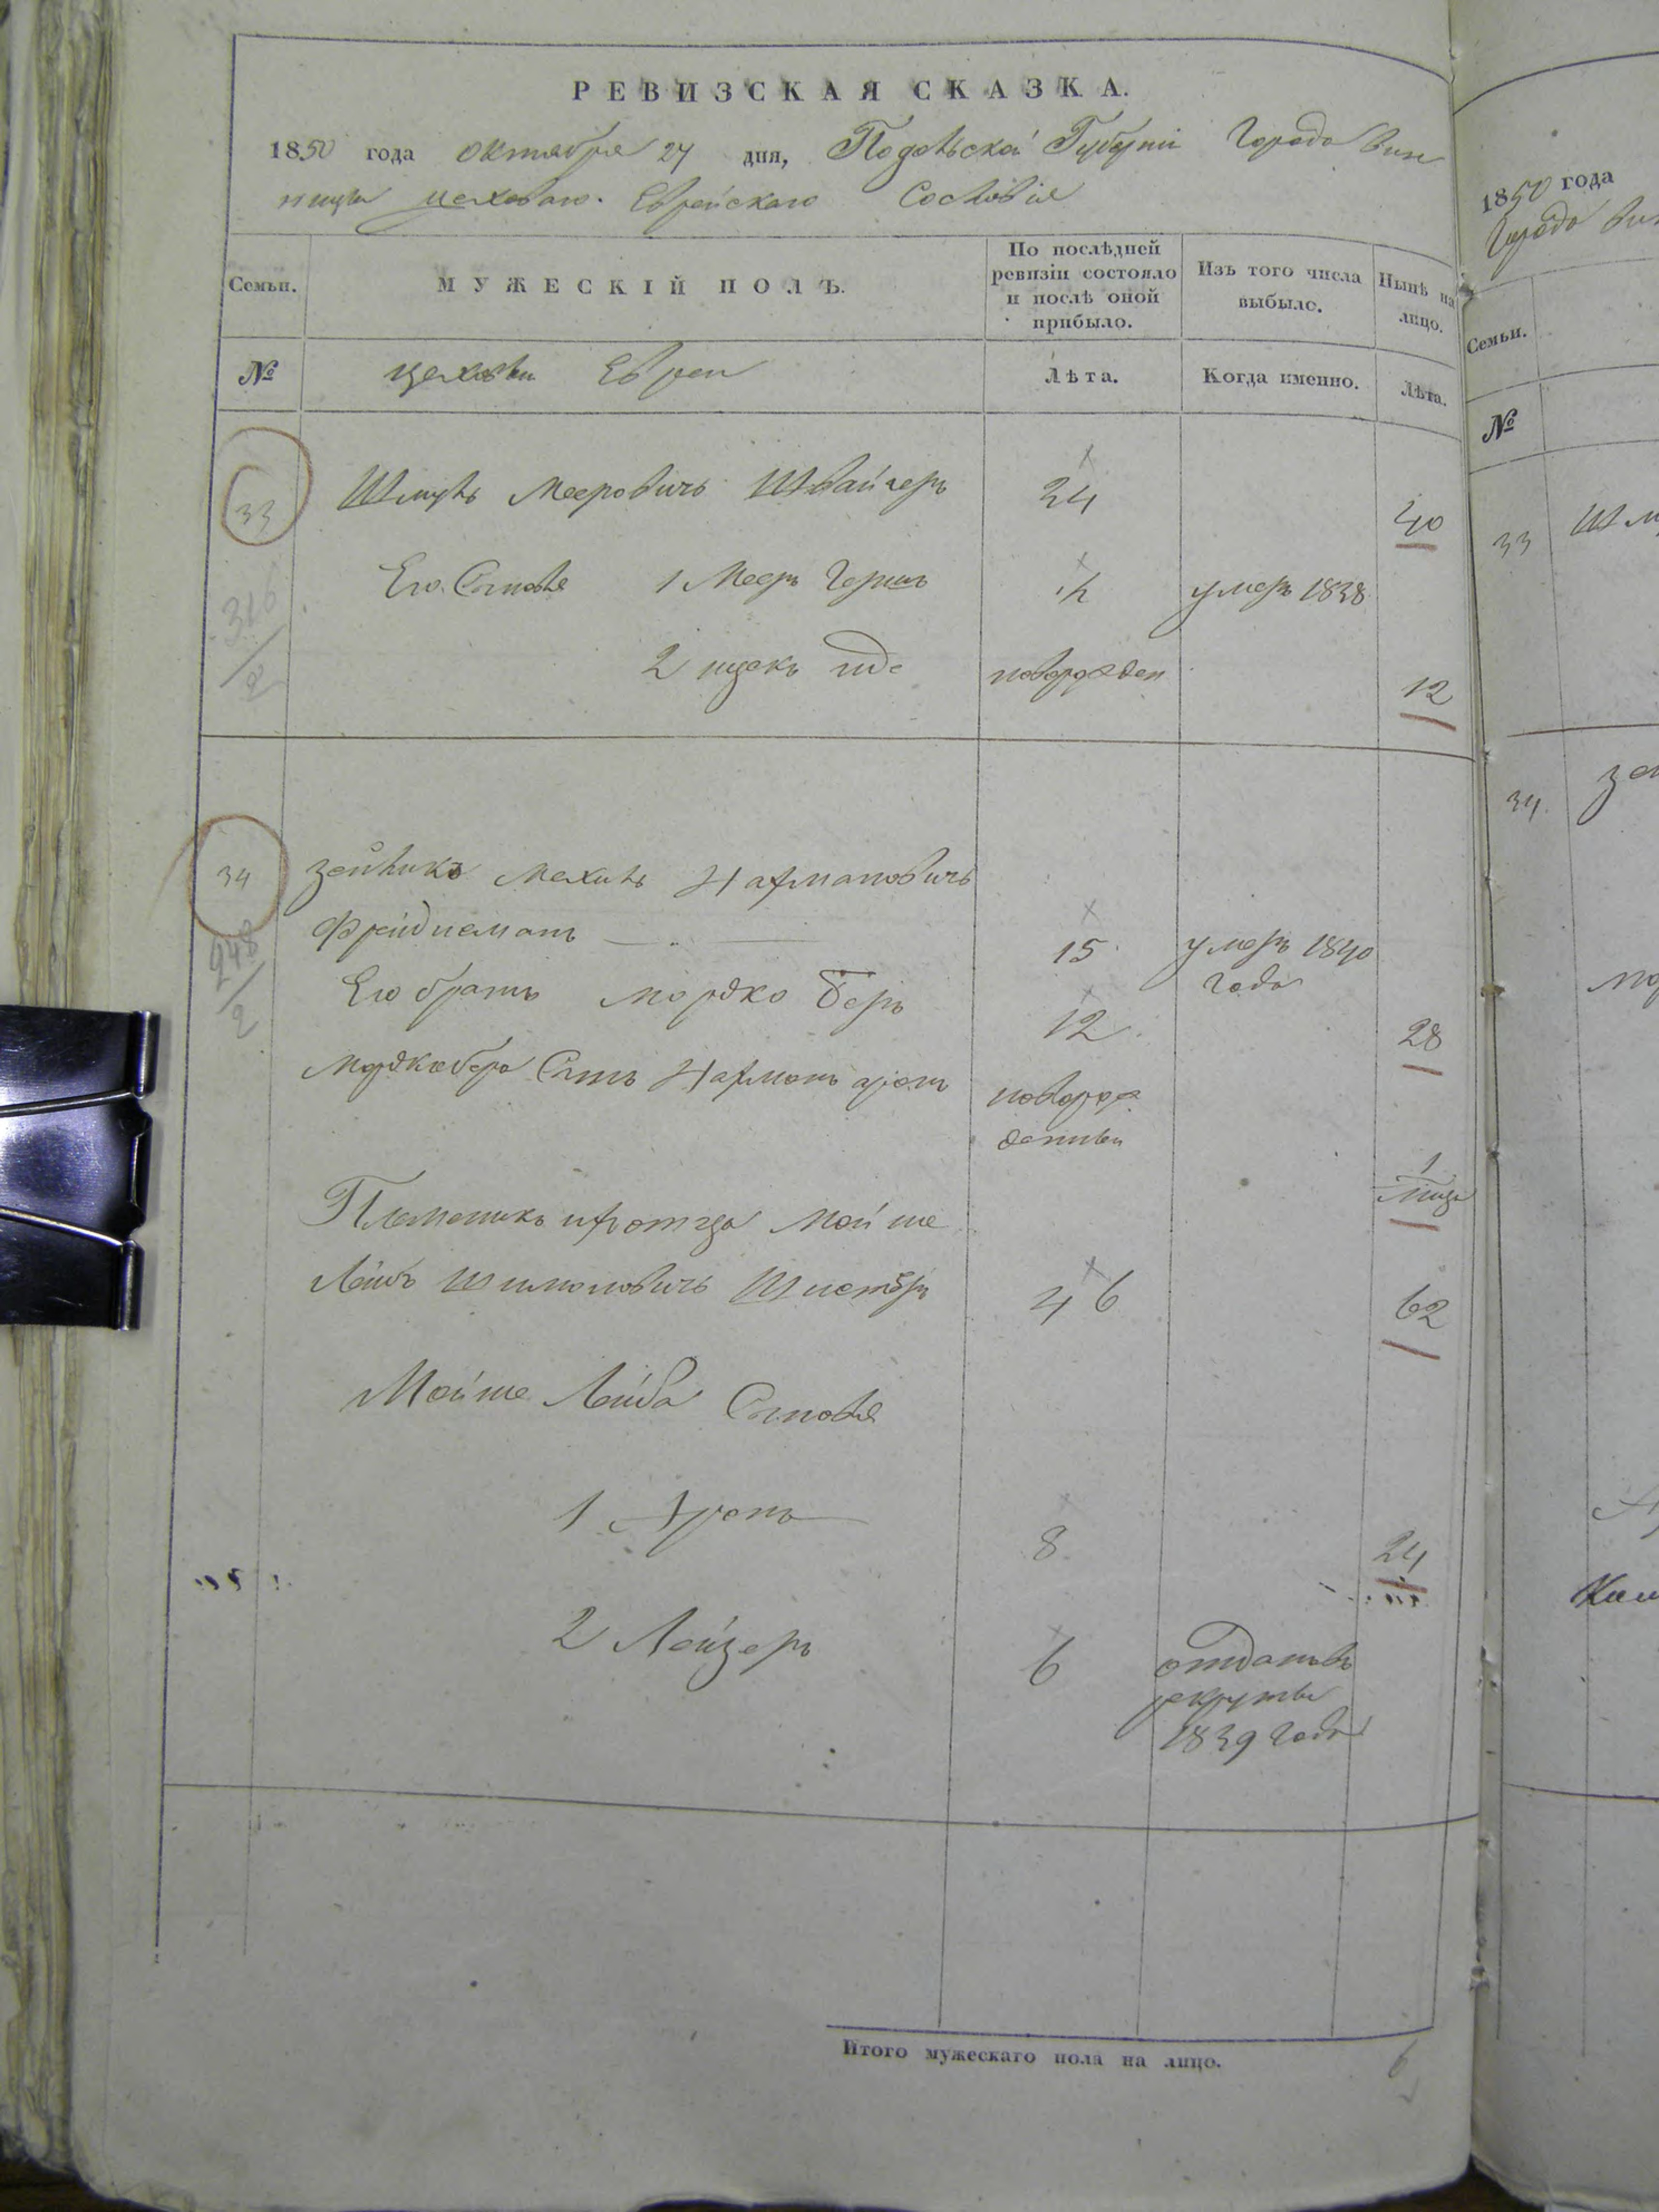 РЕВИЗСКАЯ СКАЗКА.
1850 года октября 27 дня, Подольской Губерніи Города Вин
ницы цеховаго Еврейскаго Сословія
Семьи.
МУЖЕСКІЙ ПОЛЪ.
По послѣдней ревизіи состояло и послѣ оной прибыло.
Изъ того числа выбыло.
Нынѣ на лицо.
№ цеховые Евреи Лѣта. Когда именно. Лѣта.
33 Шмуль Мееровичъ Швайгеръ 24 40
Его Сыновья 1 Мееръ Гершъ ½ умеръ 1838
2 новорожден 12
316/2
34 Зейликъ Мехель Нахмановичъ
Фрейдисманъ 15 умеръ 1840 года
248/2
Его братъ Мордко Беръ 12 28
Мордкобера Сынъ Нахманъ аронъ новорож
денный 1
Племеникъ ихъ отца Мойше
Лейбъ Шимоновичъ Шистеръ 46 62
Мойше Лейба Сыновья
1 Аронъ 8 24
2 Лейзеръ 6 отданъ въ
рекруты
1839 года
Итого мужескаго пола на лицо. 6
1850 года
Города Вин
Семьи.
№
33 Шм
34. Зе
Мо